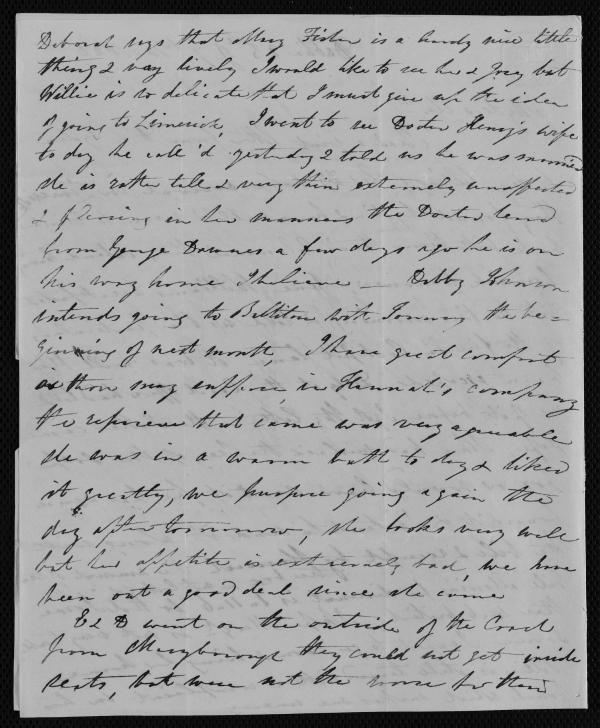 Deborah says that Mary Fisher is a hardy nice little
thing & very lively I would like to see her & Joey but
Willie is so delicate that I must give up the idea
of going to Limerick, I went to see Doctor Henry's wife
to day he call'd yesterday & told us he was married
she is rather tall & very thin extremely unaffected
& pleasing in her manners the Doctor heard
from George Downes a few days ago he is on
his way home I believe — Debby Johnson
intends going to with Tommy the be=
ginning of next month, I have great comfort
as thou may suppose in Hannah's company
the reprieve that came was very agreeable
she was in a warm bath to day & liked
it greatly, we purpose going again the
day after tomorrow, she looks very well
but her appetite is extremely bad, we have
been out a good deal since she came
E & D went on the outside of the Coach
from Maryborough they could not get inside
seats, but were not the worse for their